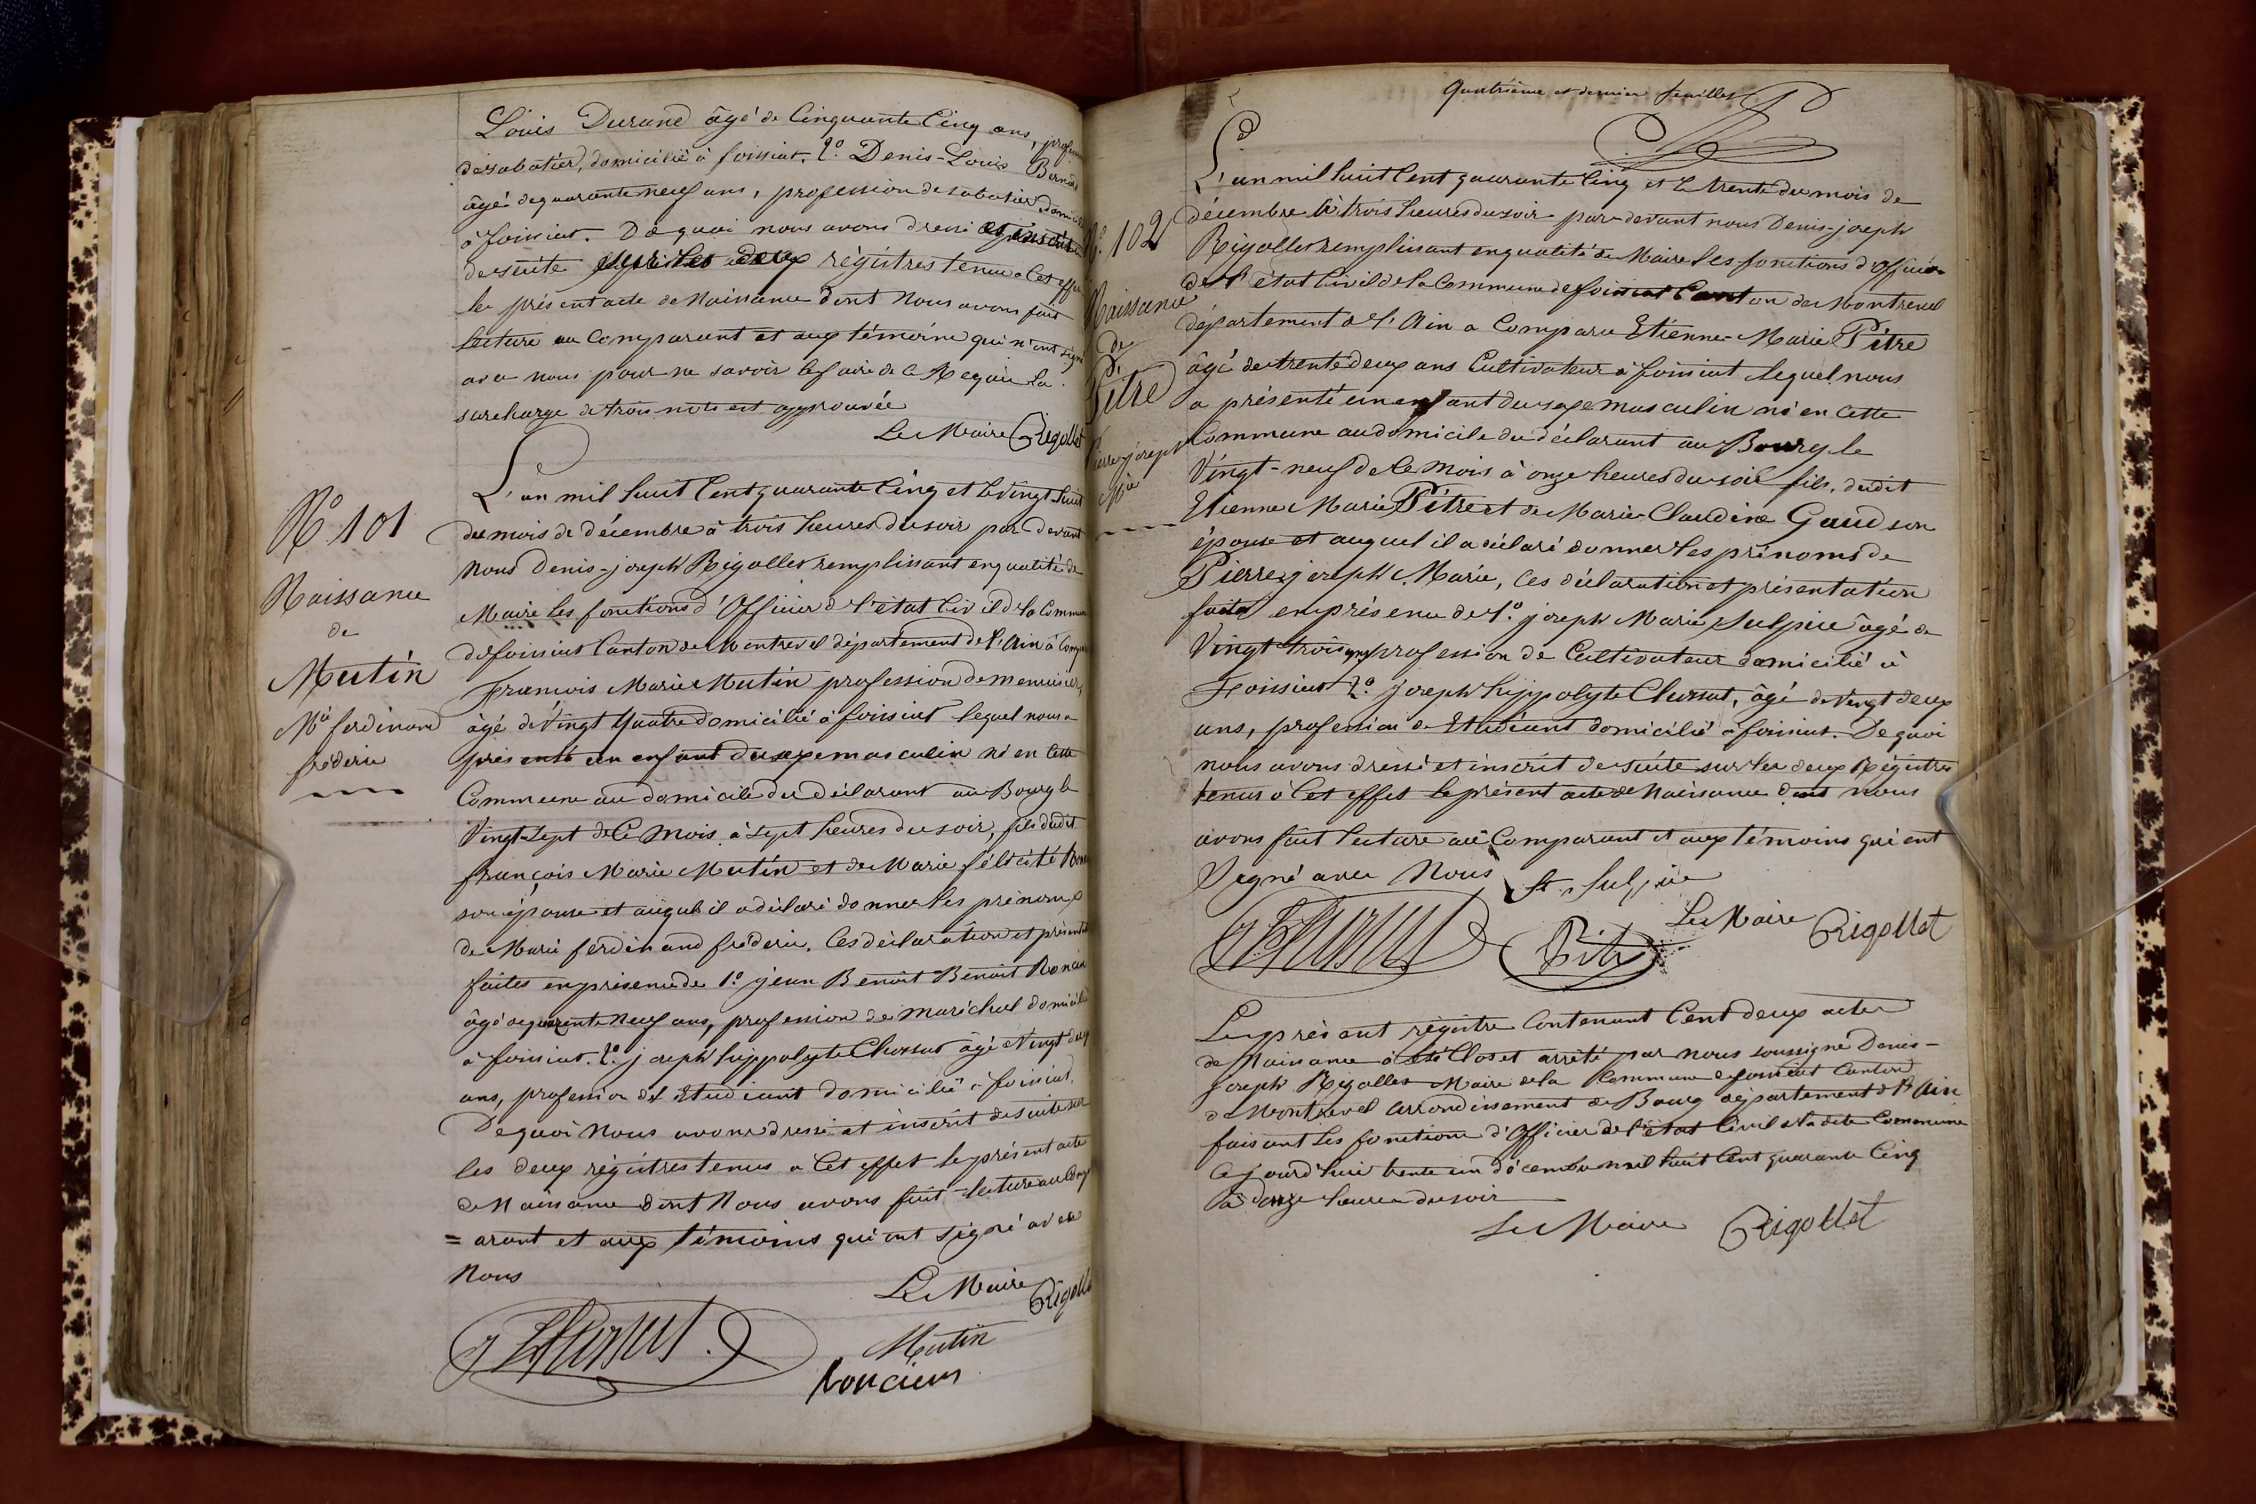 Louis Durand âgé de Cinquante Cinq ans, profession
de sabotier, domicilié à foissiat. 2º Denis-Louis Bernard
âgé de quarante neuf ans, profession de sabotier domicilié
à foissiat. De quoi nous avons dressé et inscrit
de suite sur les deux régistres tenus a Cet effet
le présent acte de Naissance dont Nous avons fait
Lecture au Comparant et aux témoins qui n'ont signé
avec nous pour ne savoir le faire de Ce Requis La
surcharge de trois mots est approuvée
Le Maire Rigollet
Nº 101
Naissance
de
Mutin
Mie ferdinand
fréderic
L'an mil huit Cent quarante Cinq et le Vingt huit
du mois de décembre à trois heures du soir par devant
Nous Denis-joseph Rigollet remplissant en qualité de
Maire les fonctions d'Officier de l'état Civil de la Commune
de foissiat Canton de Montrevel département de l'Ain à Comparu
François Marie Mutin profession de menuisier,
âgé de Vingt quatre domicilié à foissiat lequel nous a
présenté un enfant du sexe masculin né en Cette
Commune au domicile du déclarant au Bourg le
Vingt-sept de Ce Mois à sept heures du soir, fils dudit
françois Marie Mutin et de Marie félicité
son épouse et auquel il a déclaré donner les prénoms
de Marie ferdinand fréderic. Ces déclaration et présentation
faites en présence de 1º jean Benoit Benoit Roncin
âgé de quarante Neuf ans, profession de maréchal domicilié
à foissiat. 2º joseph hippolyte Chossat âgé de Vingt deux
ans, profession de Etudiant domicilié à foissiat.
De quoi Nous avons dressé et inscrit de suite sur
les deux régistres tenus a Cet effet le présent acte
de Naissance dont Nous avons fait lecture au Comp
= arant et aux témoins qui ont signé avec
Nous
Le Maire Rigollet
J H Chossat
Mutin
Quatrième et dernier feuillet
Nº 102
Naissance
de
Pitre
Pierre joseph
Mie
L'an mil huit Cent quarante Cinq et le trente du mois de
décembre à trois heures du soir par-devant nous Denis-joseph
Rigollet remplissant en qualité de Maire les fonctions d'officier
de l'état Civil de la Commune de foissiat Canton de Montrevel
département de l'Ain a Comparu Etienne-Marie Pitre
âgé de trente deux ans Cultivateur à foissiat lequel nous
a présenté un enfant du sexe masculin né en Cette
Commune au domicile du déclarant au Bourg le
Vingt-neuf de Ce mois à onze heures du soir fils, dudit
Etienne Marie Pitre et de Marie Claudine Gaud son
épouse et auquel il a déclaré donner les prénoms de
Pierre joseph Marie, Ces déclaration et présentation
faites en présence de 1º. joseph Marie Sulpice âgé de
Vingt trois ans profession de Cultivateur domicilié à
Foissiat 2º joseph hippolyte Chossat, âgé de Vingt deux
ans, profession de Etudiant domicilié à foissiat. De quoi
nous avons dressé et inscrit de suite sur les deux Régistres
tenus à Cet effet le présent acte de Naissance dont nous
avons fait lecture au Comparant et aux témoins qui ont
Signé avec Nous
Sulpice
J H Chossat
Pitre
Le Maire Rigollet
Le présent régistre Contenant Cent deux actes
de Naissance a été Clos et arrêté par nous soussigné Denis-
joseph Rigollet Maire de la Commune de foissiat Canton
de Montrevel arrondissement de Bourg département de l'Ain
faisant les fonctions d'Officier de l'état Civil de la dite Commune
Cejourd'hui trente un décembre mil huit Cent quarante Cinq
à onze heures du soir
Le Maire Rigollet